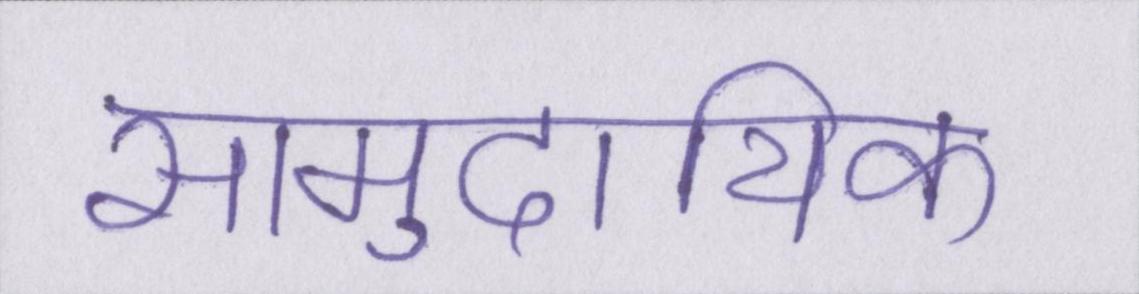 सामुदायिक